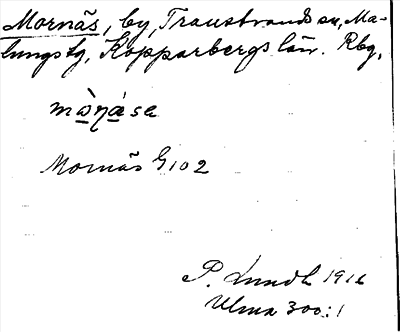 Mornäs, by, Transtrands sn, Ma-
lungs tg, Kopparbergs län. Rbg,
Mornäs G 102
P. Lundh 1916
Ulma 300:1